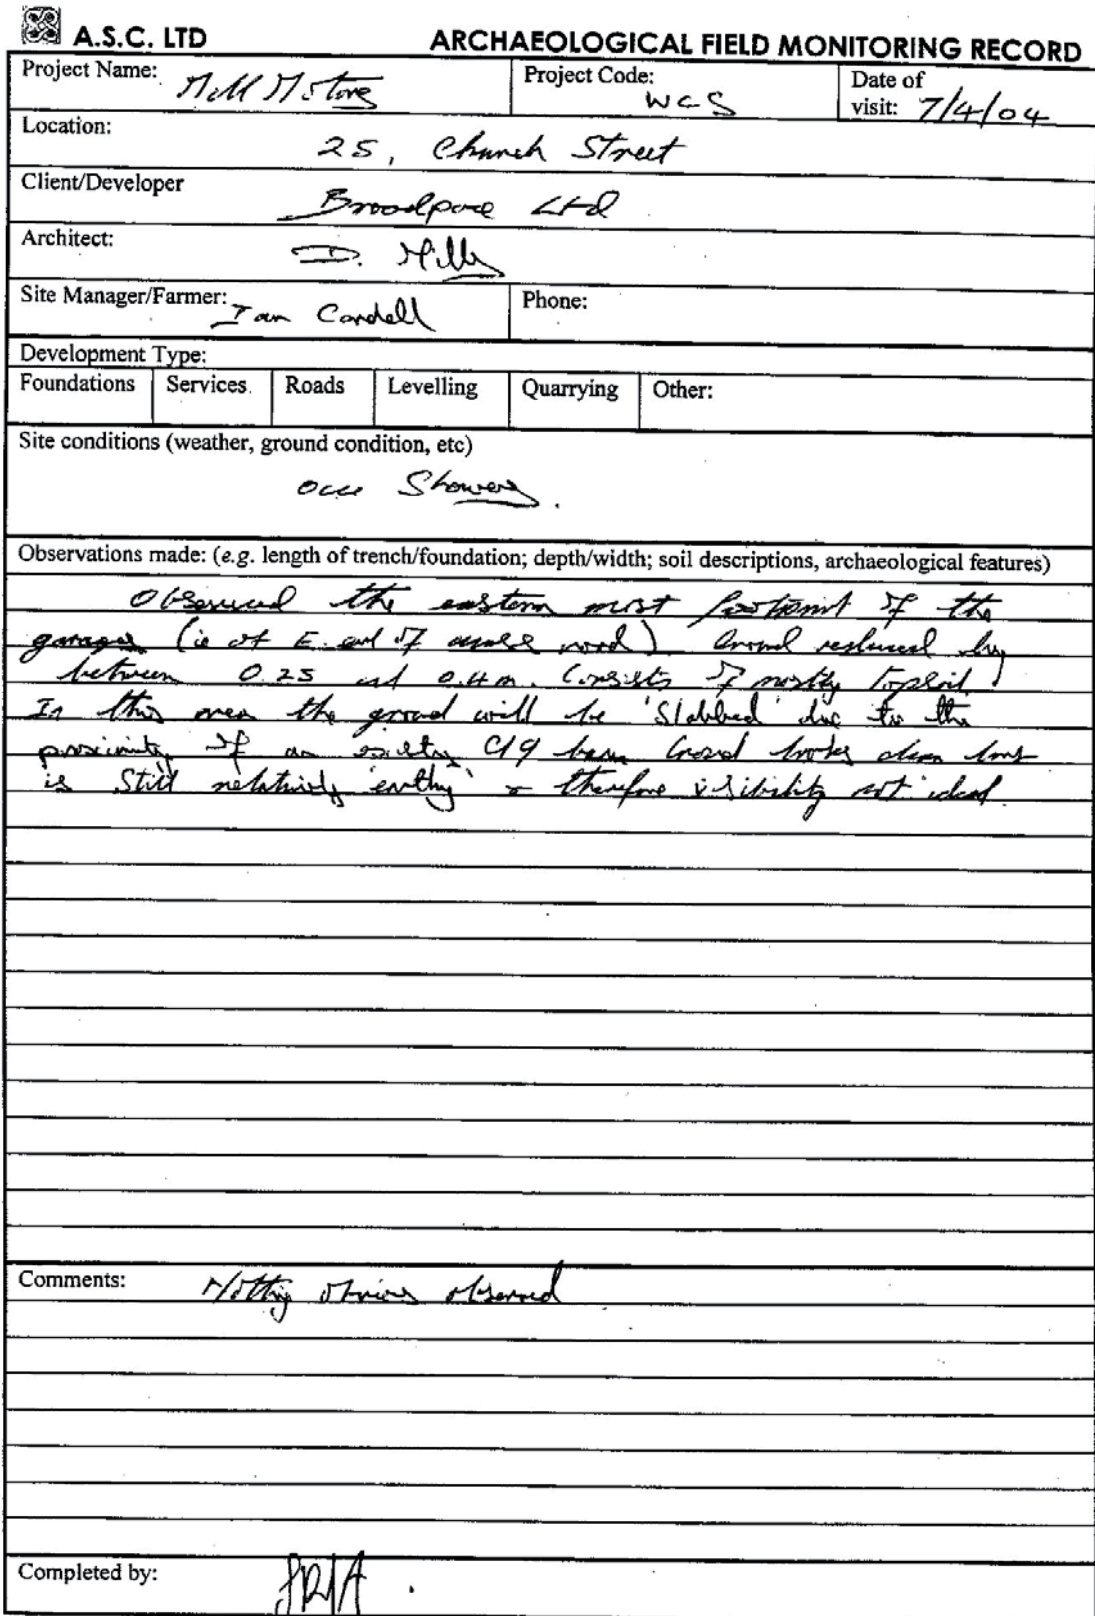 A.S.C. LTD
ARCHAEOLOGICAL FIELD MONITORING RECORD
Project Name: Mill Motors
Project Code: WCS
Date of visit: 7/4/04
Location: 25, Church Street
Client/Developer Broadpace Ltd
Architect: D. Mills
Site Manager/Farmer: Ian Cardell
Phone:
Development Type:
Foundations Services Roads Levelling Quarrying Other:
Site conditions (weather, ground condition, etc)
occ Showers.
Observations made: (e.g. length of trench/foundation; depth/width; soil descriptions, archaeological features)
Observed the eastern most footprint of the
garages (ie at E. end of access road). Ground reduced by
between 0.25 and 0.4m. Consists of mostly topsoil.
In this area the ground will be 'slabbed' due to the
proximity of an existing C19 barn Ground looks clean but
is still relatively 'earthy' & therefore visibility not ideal
Comments: Nothing obvious observed
Completed by: